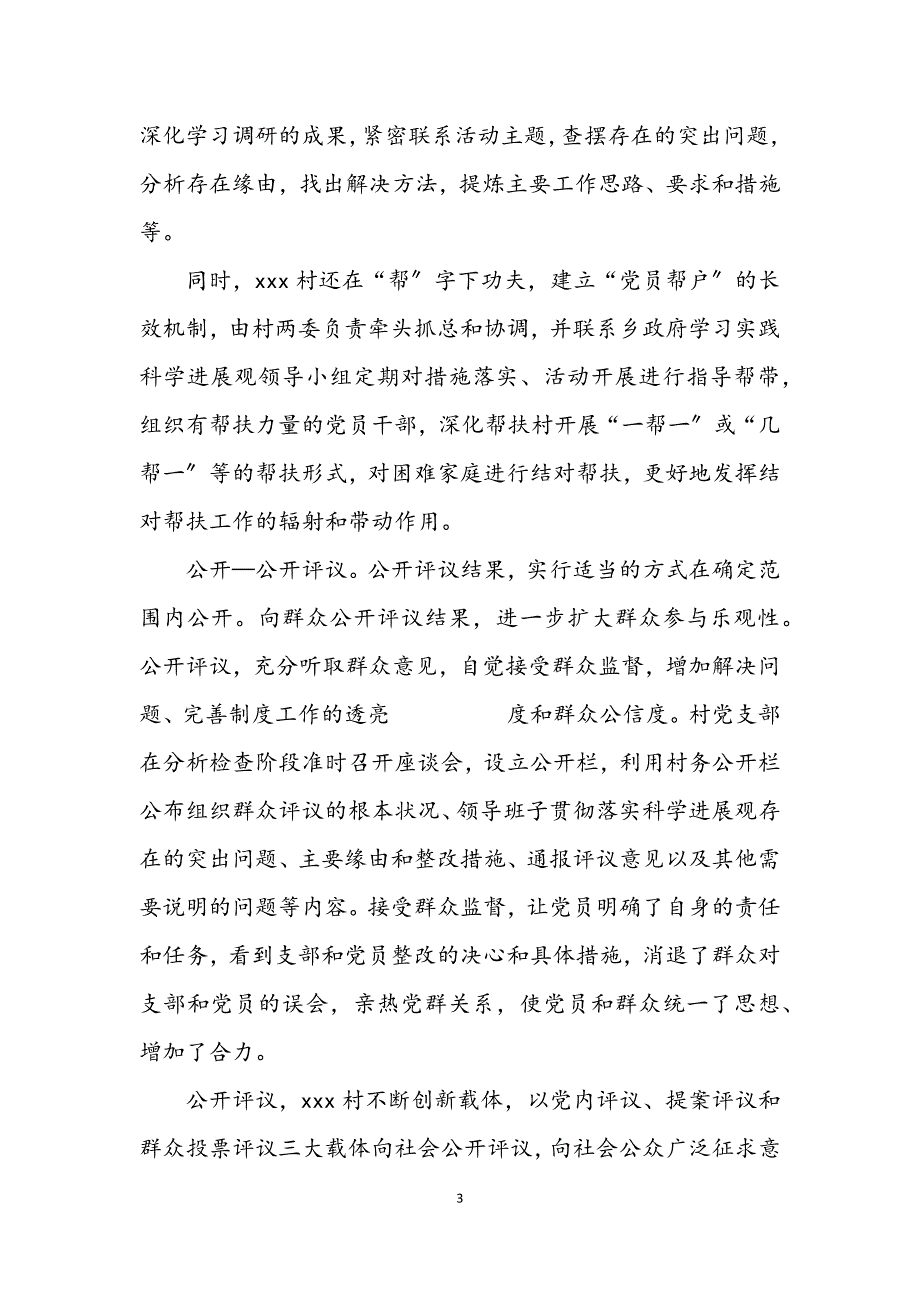 深化学习调研的成果，紧密联系活动主题，查摆存在的突出问题，
分析存在缘由，找出解决方法，提炼主要工作思路、要求和措施
等。
同时，xxx 村还在“帮〞字下功夫，建立“党员帮户〞的长
效机制，由村两委负责牵头抓总和协调，并联系乡政府学习实践
科学进展观领导小组定期对措施落实、活动开展进行指导帮带，
组织有帮扶力量的党员干部，深化帮扶村开展“一帮一〞或“几
帮一〞等的帮扶形式，对困难家庭进行结对帮扶，更好地发挥结
对帮扶工作的辐射和带动作用。
公开—公开评议。公开评议结果，实行适当的方式在确定范
围内公开。向群众公开评议结果，进一步扩大群众参与乐观性。
公开评议，充分听取群众意见，自觉接受群众监督，增加解决问
题、完善制度工作的透亮 度和群众公信度。村党支部
在分析检查阶段准时召开座谈会，设立公开栏，利用村务公开栏
公布组织群众评议的根本状况、领导班子贯彻落实科学进展观存
在的突出问题、主要缘由和整改措施、通报评议意见以及其他需
要说明的问题等内容。接受群众监督，让党员明确了自身的责任
和任务，看到支部和党员整改的决心和具体措施，消退了群众对
支部和党员的误会，亲热党群关系，使党员和群众统一了思想、
增加了合力。
公开评议，xxx 村不断创新载体，以党内评议、提案评议和
群众投票评议三大载体向社会公开评议，向社会公众广泛征求意
3